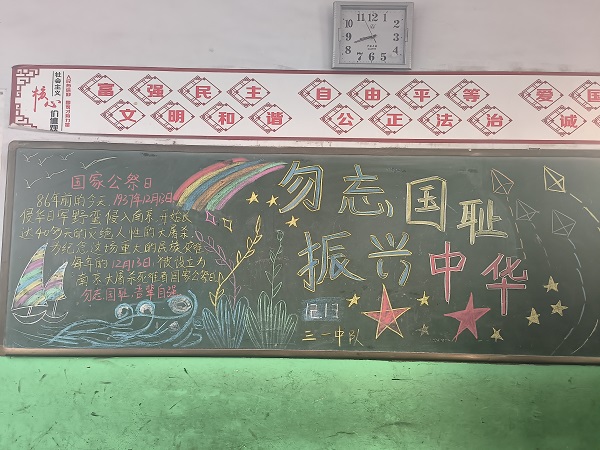 11 12 1
社会主义
核心
价值观
富强民主 自由平等 爱国
文明和谐 公正法治 诚
国家公祭日
86年前的今天,1937年12月13日
侵华日军野蛮侵入南京,开始长
达40多天的灭绝人性的大屠杀。
为纪念这场重大的民族灾难
每年的12月13日被设立为
南京大屠杀死难者国家公祭日
勿忘国耻 吾辈自强
勿志国耻
振兴中华
12.13
三一中队